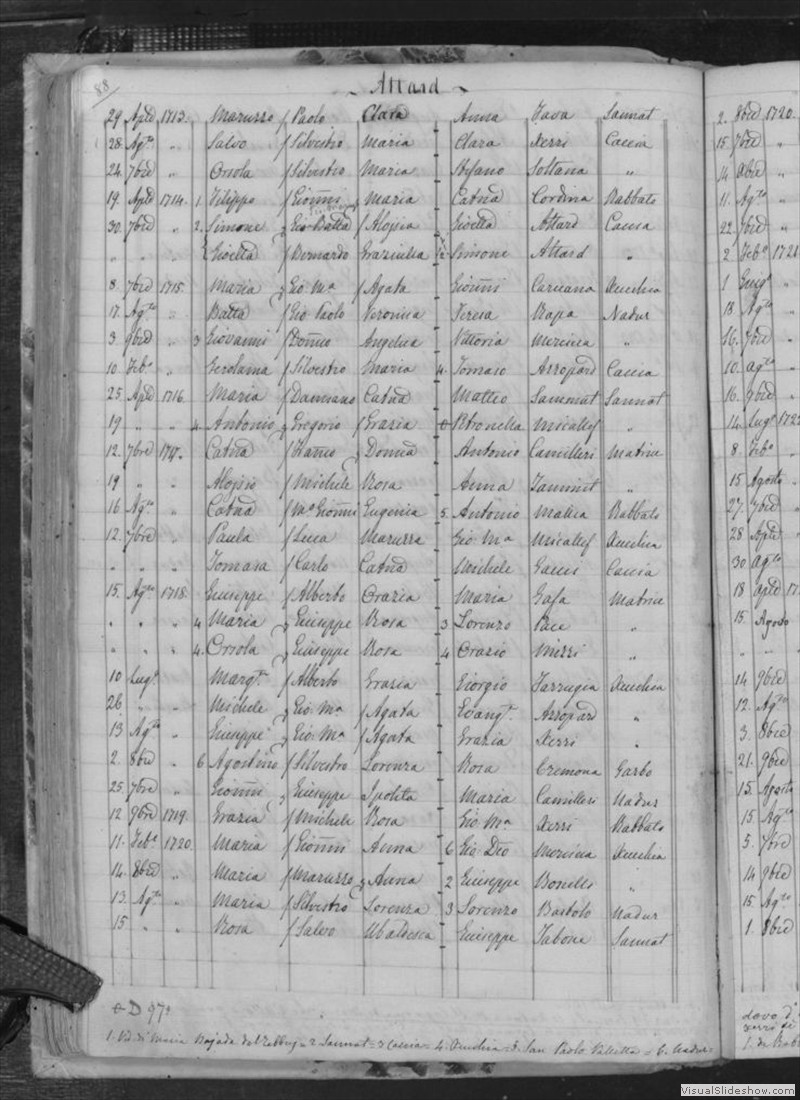 88
Attard
29 Aple 1713. Maruzzo f Paolo Clara Anna Fava Sannat
28. Agto " Salvo f Silvestro Maria Clara Xerri Caccia
24. 7bre " Orsola f Silvestro Maria Stefano Soltana "
19. Aple 1714. 1. Filippo f Gioñi Maria Catna Cordina Rabbato
30. 7bre " 2. Simone Gio Batta f Aloisia Gioetta Attard Caccia
" " " Gioetta f Bernardo Graziulla 2 Simone Attard "
8. 7bre 1715. Maria Gio Ma f Agata Gioñi Caruana Xeuchia
17. Agto " Batta f Gio Paolo Veronica Teresa Rapa Nadur
3. 9bre " 3 Giovanni f Domco Angelica Vittoria Mercieca "
10. Feb. " Gerolama f Silvestro Maria 4. Tomaso Arropard Caccia
25. Aple 1716. Maria f Damiano Catna Matteo Sammut Sannat
19 " " 4. Antonio Gregorio f Grazia Petronella Micallef "
12. 7bre 1717. Catna Donna Antonio Camilleri Matrice
19 " " Aloisio f Michele Rosa Anna Tammut "
16 Agto " Catna f Ma Gioñi Eugenia 5. Antonio Mallia Rabbato
12. 7bre " Paula f Luca Maruzza Gio Ma Micallef Xeuchia
" " " Tomasa f Carlo Catna Michele Gauci Caccia
15. Agto 1718. Giuseppe f Alberto Orazia Maria Gafa Matrice
" " " 4 Maria Giuseppe Rosa 3 Lorenzo Pace "
" " " 4. Orsola Giuseppe Rosa 4 Orazio Mizzi "
10 Lugo " Margta f Alberto Grazia Giorgio Farrugia Xeuchia
26 " " Michele Gio Ma f Agata Evangta Arropard "
13 Agto " Giuseppe Gio Ma f Agata Grazia Xerri "
2. 8bre " 6 Agostino f Silvestro Lorenza Rosa Cremona Garbo
25. 7bre " Gioñi Giuseppe Ipolita Maria Camilleri Nadur
12 9bre 1719. Grazia f Michele Rosa Gio Ma Xerri Rabbato
11. Feb. 1720. Maria f Gioñi Anna 6 Gio Dto Mercieca Xeuchia
14. 8bre " Maria f Maruzzo Anna 2 Giuseppe Bonelli "
13. Agto " Maria f Silvestro Lorenza 3 Lorenzo Bartolo Nadur
15 " " Rosa f Salvo Ubaldesca Giuseppe Tabone Sannat
D 97
1. Vd. di Maria Bajada del Zebbug = 2 Sannat = 3 Caccia = 4. Xeuchia = 5. San Paolo Valletta = 6. Nadur =
2. 8bre 1720.
15. 7bre
14 8bre
11. Agto
22. 7bre
2 Feb. 1721
1 Giugo
18. Agto
16. 7bre
10. agto
16. 7bre
14. Lugo 1722
8. Feb.
15 Agosto
27. 7bre
28 Aple
30 agto
18 aple
15. Agosto
14. 9bre
12. Agto
3. 8bre
21. 9bre
15. Agosto
15. Agto
5. 7bre
14 9bre
15. Agto
1. 8bre
VisualSlideshow.com